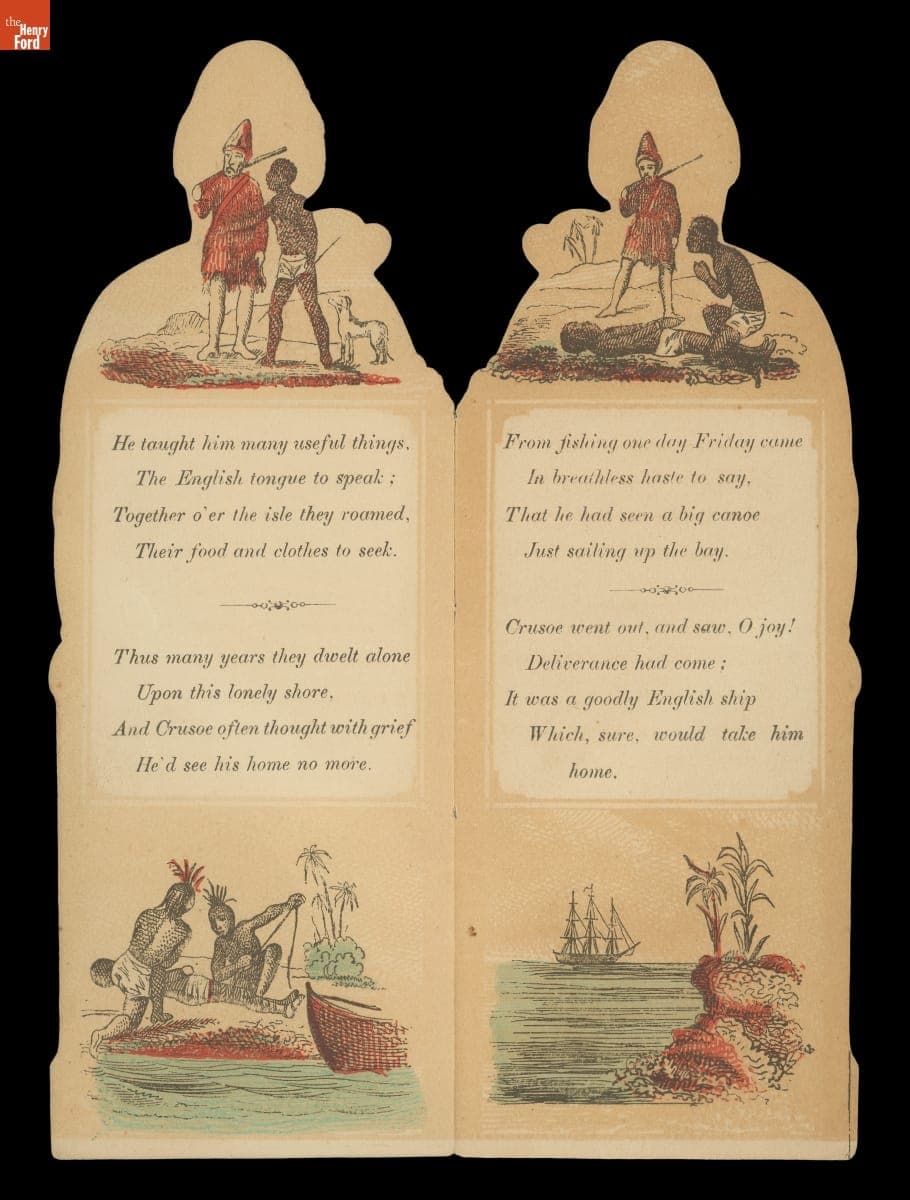 the
Henry
Ford
He taught him many useful things,
The English tongue to speak;
Together o'er the isle they roamed,
Their food and clothes to seek.
Thus many years they dwelt alone
Upon this lonely shore,
And Crusoe often thought with grief
He'd see his home no more.
From fishing one day Friday came
In breathless haste to say,
That he had seen a big canoe
Just sailing up the bay.
Crusoe went out, and saw, O joy!
Deliverance had come;
It was a goodly English ship
Which, sure, would take him
home.